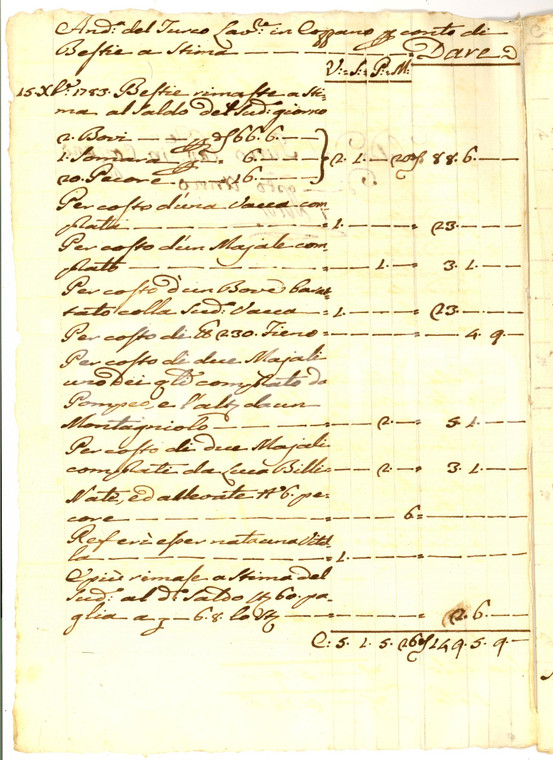 And.ª del Turco Lav.re in Cozzano p conto di
Bestie a Stima — Dare D
V:= S:= P:= M:
15. Xbre 1783. Bestie rimaste a Sti=
ma al Saldo del Sud.º giorno
2. Bovi — 66. 6. —
1. Somara — 6. —
20. Pecore — 16. — = 2. 1. — 20 88. 6. —
Per costo d'una Vacca com=
prata — = 1. — = 23. —
Per costo d'un Majale com=
prato — = — 1. — = 3. 1. —
Per costo d'un Bove barat=
tato colla Sud.ª Vacca — = 1. — = 23. —
Per costo di 230. Fieno — = — = — 4. 9
Per costo di due Majali
uno dei qli comprato da
Pompeo, e l'altro da un
Montagniolo — = — 2. — = 5. 1. —
Per costo di due Majali
comprati da Luca Billi — = — 2. — = 3. 1. —
Nate, ed allevate Nº 6. pe=
core — = — 6=
Referì esser nata una Vitel=
la — = 1. — =
E più rimase a Stima del
Sud.º al dº Saldo 60. pa=
glia a — 6. 8. lo — = — = 2. 6. —
C: 5. 1. 5. 26 149. 5. 9. —